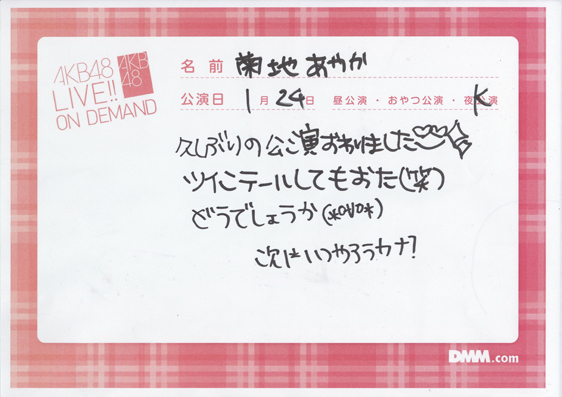 AKB48
LIVE!!
ON DEMAND
AKB
48
名前 菊地あやか
公演日 1月24日 昼公演・おやつ公演・夜公演 K
久しぶりの公演おわりました♡♡☆
ツインテールしてもおた(笑)
どうでしょうか(*o∀o*)
次はいつやろうカナ?
DMM.com